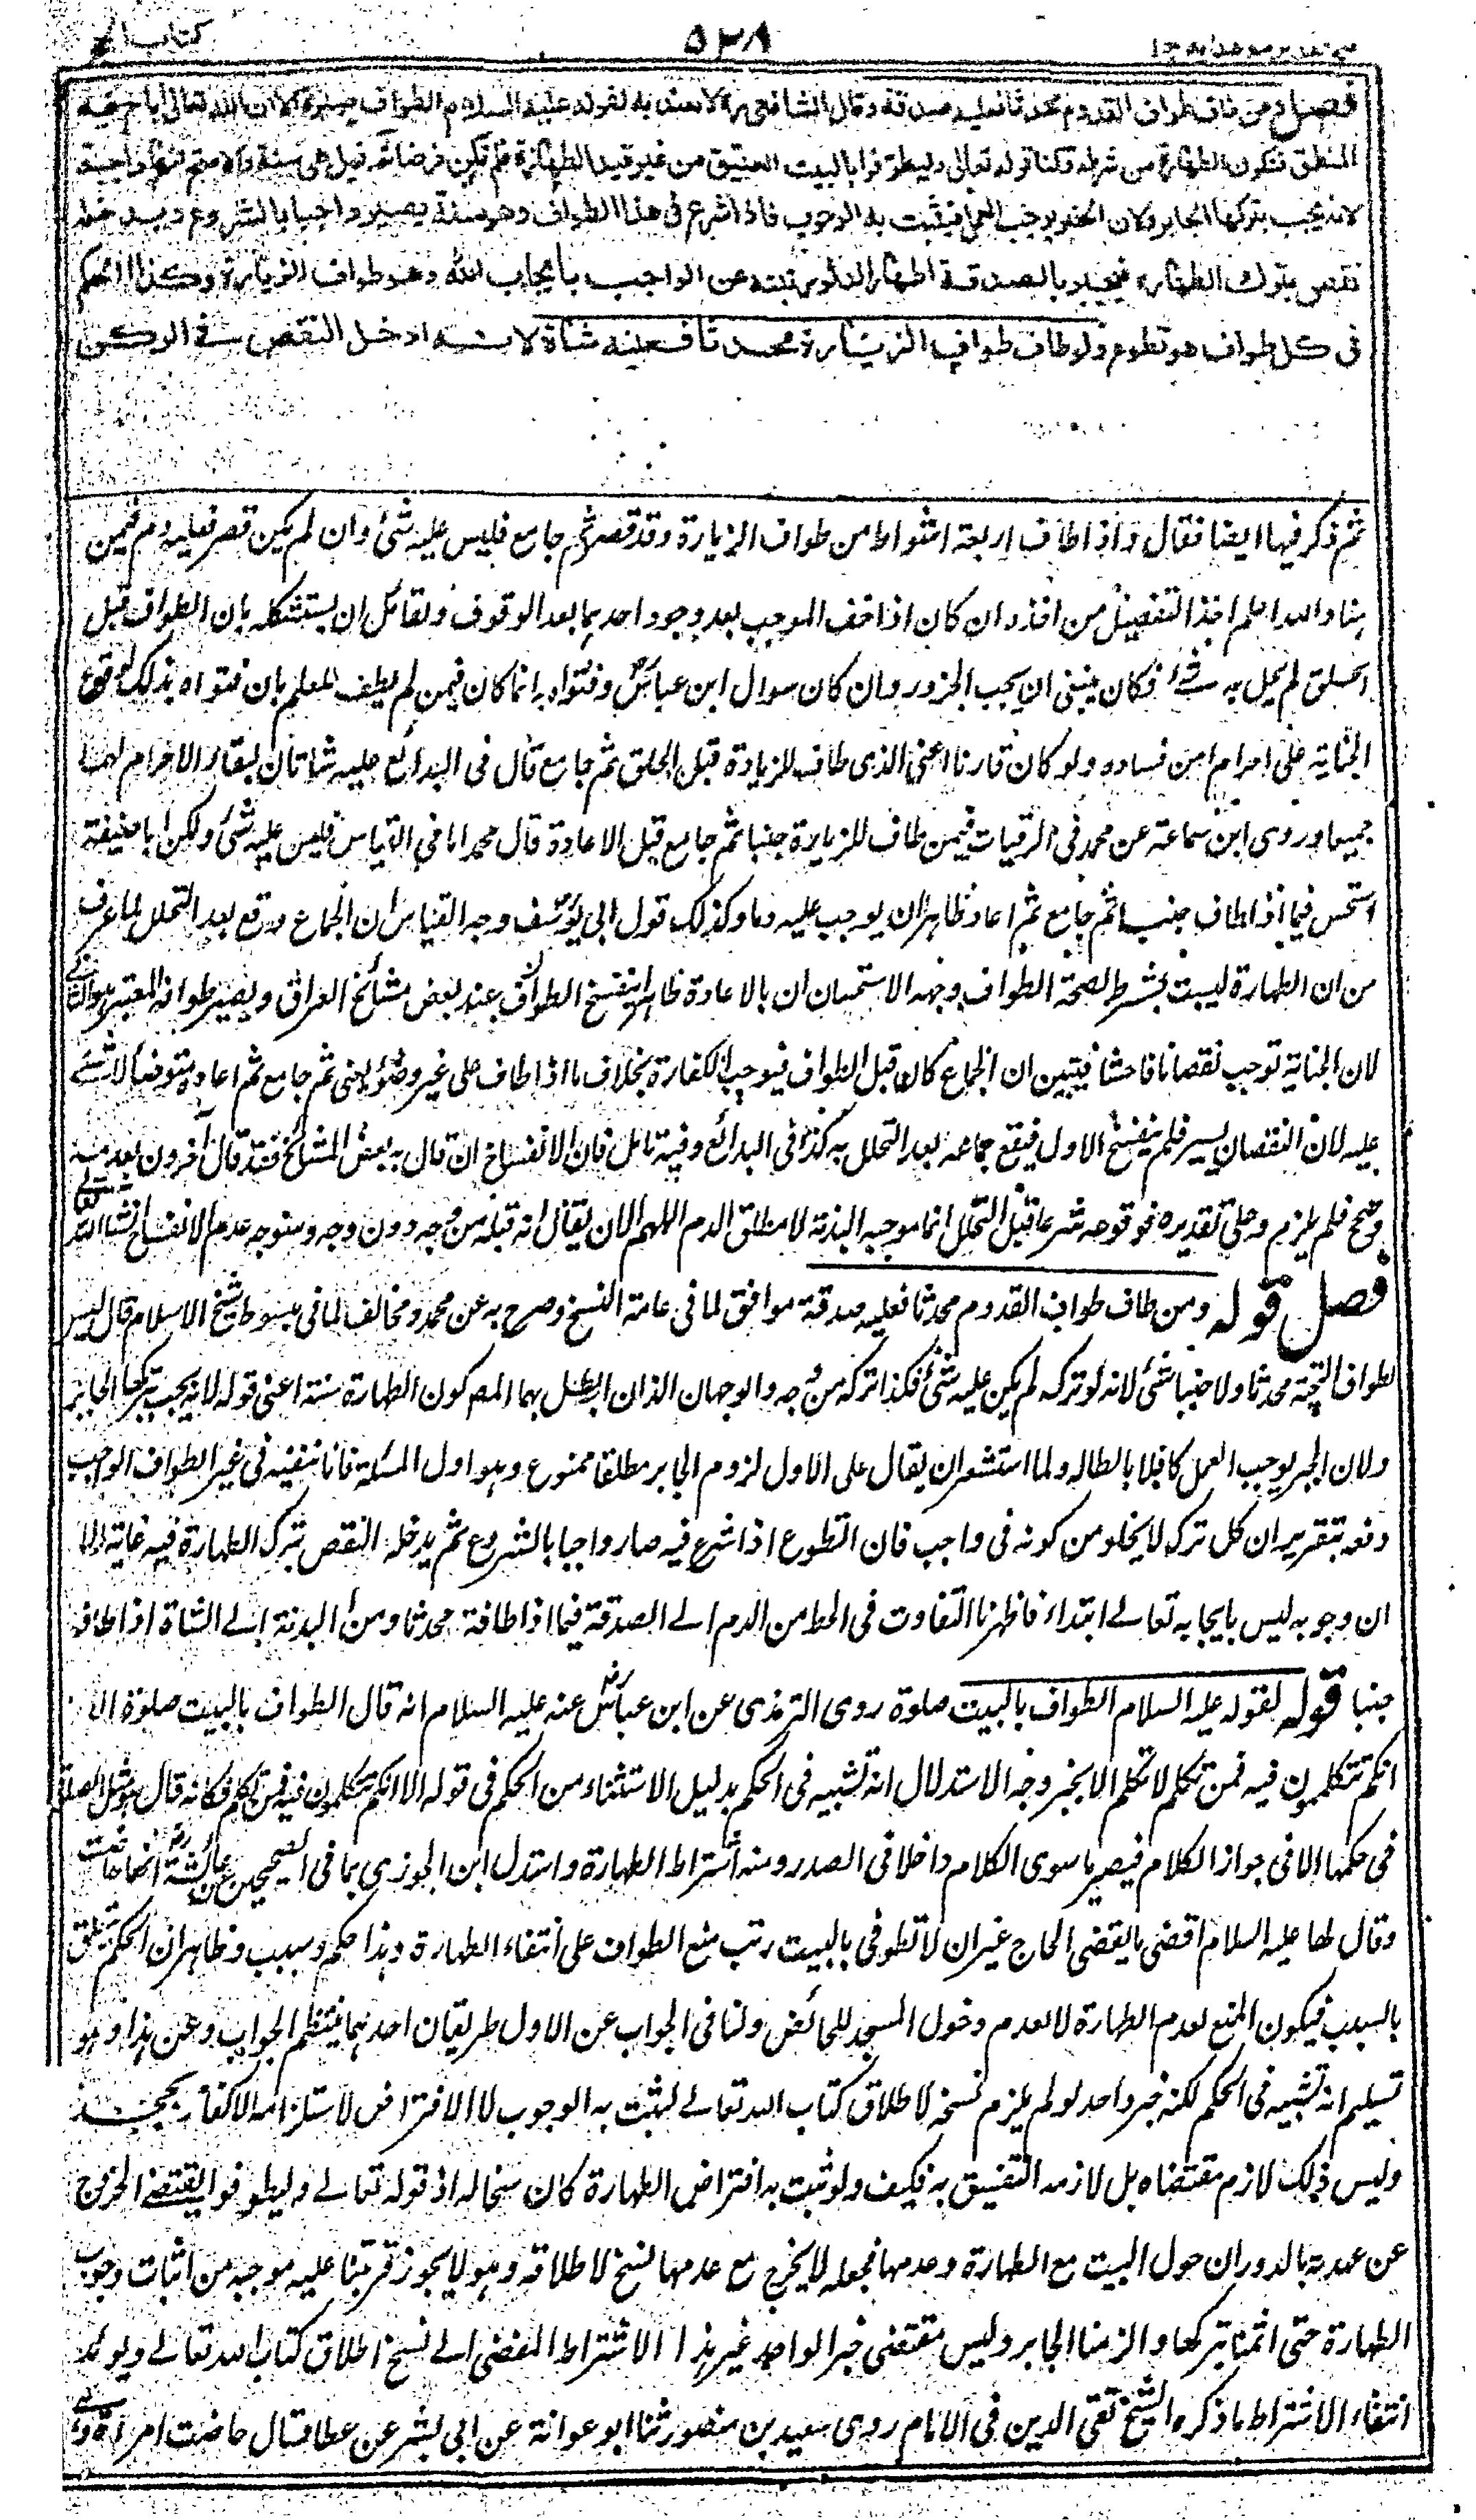 كتاب الحج
٥٣٨
فتح القدير مع هداية ج ا
فصل ومن طاف طواف القدوم محدثا فعليه صدقة وقال الشافعي رح لا يعتد به لقوله عليه السلام الطواف صلوة الا ان الله تعالى اباح فيه
المنطق فتكون الطهارة من شرطه ولنا قوله تعالى وليطوفوا بالبيت العتيق من غير قيد الطهارة فلم تكن فرضا ثم قيل هي سنة والاصح انها واجبة
لانه يجب بتركها الجابر ولان الخبر يوجب العمل فيثبت به الوجوب فاذا شرع في هذا الطواف وهو سنة يصير واجبا بالشروع ويدخله
نقص بترك الطهارة فيجبر بالصدقة اظهارا لدنو رتبته عن الواجب بايجاب الله وهو طواف الزيارة وكذا الحكم
في كل طواف هو تطوع ولو طاف طواف الزيارة محدثا فعليه شاة لانه ادخل النقص في الركن
ثم ذكر فيها ايضا فقال واذا طاف اربعة اشواط من طواف الزيارة وقد قصر ثم جامع فليس عليه شئ وان لم يكن قصر فعليه دم فمن
هنا والله اعلم اخذ التفصيل من اخذه ان كان اذا خف الموجب بعد وجود احدهما بعد الوقوف ولقائل ان يستشكله بان الطواف قبل
الحلق لم يحل به شئ فكان ينبغى ان يجب الجزور وان كان سوال ابن عباس وفتواه به انما كان فيمن لم يطف للعلم بان فتواه بذلك لوقوع
الجناية على احرام امن فساده ولو كان قارنا اعنى الذى طاف للزيارة قبل الحلق ثم جامع قال فى البدائع عليه شاتان لبقاء الاحرام لهما
جميعا وروى ابن سماعة عن محمد فى الرقيات فيمن طاف للزيارة جنبا ثم جامع قبل الاعادة قال محمد اما فى القياس فليس عليه شئ ولكن ابا حنيفة
استحسن فيما اذا طاف جنبا ثم جامع ثم اعاد ظاهرا ان يوجب عليه دما وكذلك قول ابى يوسف وجه القياس ان الجماع وقع بعد التحلل لما عرف
من ان الطهارة ليست بشرط لصحة الطواف وجه الاستحسان ان بالاعادة ظاهرا ينفسخ الطواف عند بعض مشائخ العراق ويصير طوافه المعتبر هو الثانى
لان الجناية توجب نقصانا فاحشا فيتبين ان الجماع كان قبل الطواف فيوجب الكفارة بخلاف ما اذا طاف على غير وضوء يعنى ثم جامع ثم اعاده متوضيا لا شئ
عليه لان النقصان يسير فلم ينفسخ الاول فيقع جماعه بعد التحلل به كذا فى البدائع وفيه تامل فان الانفساخ ان قال به بعض المشائخ فقد قال آخرون بعدمه
وصح فلم يلزم وعلى تقديره فوقوعه شرعا قبل التحلل انما موجبه البدنة لا مطلق الدم اللهم الا ان يقال انه قبله من وجه دون وجه وسنوجه عدم الانفساخ ان شاء الله تعالى
فصل قوله ومن طاف طواف القدوم محدثا فعليه صدقة موافق لما فى عامة النسخ وصرح به عن محمد ومخالف لما فى مبسوط شيخ الاسلام قال ليس
لطواف التحية محدثا ولا جنبا شئ لانه لو تركه لم يكن عليه شئ فكذا تركه من وجه والوجهان اللذان ابطل بهما المص كون الطهارة سنة اعنى قوله لانه يجب بتركها الجابر
ولان الخبر يوجب العمل كافلا بابطاله ولما استشعر ان يقال على الاول لزوم الجابر مطلقا ممنوع وهو اول المسئلة فانا ننفيه فى غير الطواف الواجب
دفعه بتقرير ان كل ترك لا يخلو من كونه فى واجب فان التطوع اذا شرع فيه صار واجبا بالشروع ثم يدخله النقص بترك الطهارة فيه غاية الامر
ان وجوبه ليس بايجابه تعالى ابتداء فاظهرنا التفاوت فى الحط من الدم الى الصدقة فيما اذا طافه محدثا ومن البدنة الى الشاة اذا طاف
جنبا قوله لقوله عليه السلام الطواف بالبيت صلوة روى الترمذى عن ابن عباس رض عنه عليه السلام انه قال الطواف بالبيت صلوة الا
انكم تتكلمون فيه فمن تكلم لا تكلم الا بخير وجه الاستدلال انه تشبيه فى الحكم بدليل الاستثناء من الحكم فى قوله الا انكم تتكلمون فيه فمن تكلم فكانه قال هو مثل الصلوة
فى حكمها الا فى جواز الكلام فيصير ما سوى الكلام داخلا فى الصدر ومنه اشتراط الطهارة واستدل ابن الجوزى بما فى الصحيحين عن عائشة رض انها حاضت
وقال لها عليه السلام اقضى ما يقضى الحاج غير ان لا تطوفى بالبيت رتب منع الطواف على انتفاء الطهارة وهذا حكم وسبب وظاهر ان الحكم يتعلق
بالسبب فيكون المنع لعدم الطهارة لا لعدم دخول المسجد للحائض ولنا فى الجواب عن الاول طريقان احدهما ينتظم الجواب وعن هذا وهو
تسليم انه تشبيه فى الحكم لكنه خبر واحد لو لم يلزم نسخه لاطلاق كتاب الله تعالى لثبت به الوجوب لا الافتراض لاستلزامه الاكفار بجحده
وليس ذلك لازم مقتضاه بل لازمه التفسيق به فكيف ولو ثبت به افتراض الطهارة كان نسخا له اذ قوله تعالى وليطوفوا يقتضى الخروج
عن عهدته بالدوران حول البيت مع الطهارة وعدمها فجعله لا يخرج مع عدمها نسخ لاطلاقه وهو لا يجوز فرتبنا عليه موجبه من اثبات وجوب
الطهارة حتى اثمنا بتركها والزمنا الجابر وليس مقتضى خبر الواحد غير هذا الا الاشتراط المفضى الى نسخ اطلاق كتاب الله تعالى ويؤيد
انتفاء الاشتراط ما ذكره الشيخ تقى الدين فى الامام روى سعيد بن منصور ثنا ابو عوانة عن ابى بشر عن عطا قال حاضت امراة وهى